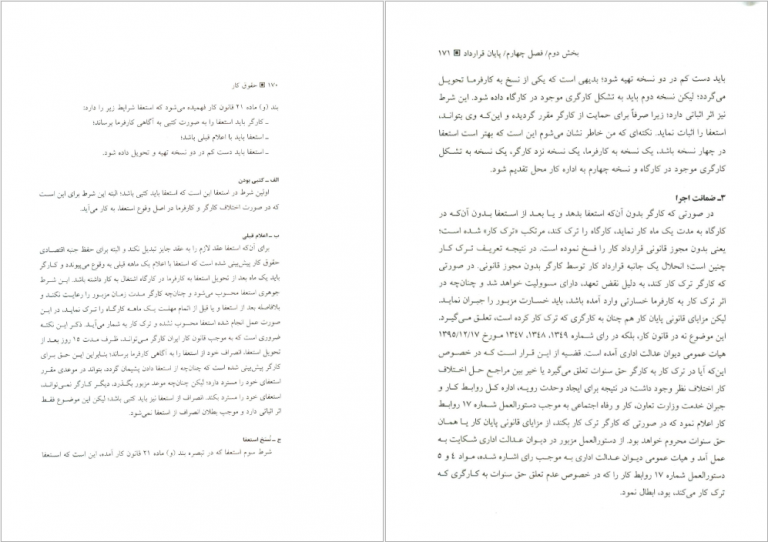 ۱۷۰ ▣ حقوق کار
بند (و) ماده ۲۱ قانون کار فهمیده می‌شود که استعفا شرایط زیر را دارد:
ـ کارگر باید استعفا را به صورت کتبی به آگاهی کارفرما برساند؛
ـ استعفا باید با اعلام قبلی باشد؛
ـ استعفا باید دست کم در دو نسخه تهیه و تحویل داده شود.
الف ـ کتبی بودن
اولین شرط در استعفا این است که استعفا باید کتبی باشد؛ البته این شرط برای این است
که در صورت اختلاف کارگر و کارفرما در اصل وقوع استعفا، به کار می‌آید.
ب ـ اعلام قبلی
برای آن‌که استعفا عقد لازم را به عقد جایز تبدیل نکند و البته برای حفظ جنبه اقتصادی
حقوق کار پیش‌بینی شده است که استعفا با اعلام یک ماهه قبلی به وقوع می‌پیوندد و کارگر
باید یک ماه بعد از تحویل استعفا به کارفرما در کارگاه اشتغال به کار داشته باشد. این شرط
جوهری استعفا محسوب می‌شود و چنان‌چه کارگر مدت زمان مزبور را رعایت نکند و
بلافاصله بعد از استعفا و یا قبل از اتمام مهلت یک ماهه کارگاه را ترک نماید، در این
صورت عمل انجام شده استعفا محسوب نشده و ترک کار به شمار می‌آید. ذکر این نکته
ضروری است که به موجب قانون کار ایران کارگر می‌تواند، ظرف مدت ۱۵ روز بعد از
تحویل استعفا، انصراف خود از استعفا را به آگاهی کارفرما برساند؛ بنابراین ایمن حق برای
کارگر پیش‌بینی شده است که چنان‌چه از استعفا دادن پشیمان گردد، بتواند در موعدی مقرر
استعفای خود را مسترد دارد؛ لیکن چنان‌چه موعد مزبور بگذرد، دیگر کارگر نمی‌تواند،
استعفای خود را مسترد بکند. انصراف از استعفا نیز باید کتبی باشد؛ لیکن این موضوع فقط
اثر اثباتی دارد و موجب بطلان انصراف از استعفا نمی‌شود.
ج ـ نسخ استعفا
شرط سوم استعفا که در تبصره بند (و) ماده ۲۱ قانون کار آمده، این است که استعفا
بخش دوم/ فصل چهارم/ پایان قرارداد ▣ ۱۷۱
باید دست کم در دو نسخه تهیه شود؛ بدیهی است که یکی از نسخ به کارفرما تحویل
می‌گردد؛ لیکن نسخه دوم باید به تشکل کارگری موجود در کارگاه داده شود. این شرط
نیز اثر اثباتی دارد؛ زیرا صرفاً برای حمایت از کارگر مقرر گردیده و این‌که وی بتواند،
استعفا را اثبات نماید. نکته‌ای که من خاطر نشان می‌شوم این است که بهتر است استعفا
در چهار نسخه باشد، یک نسخه به کارفرما، یک نسخه نزد کارگر، یک نسخه به تشکل
کارگری موجود در کارگاه و نسخه چهارم به اداره کار محل تقدیم شود.
۳ـ ضمانت اجرا
در صورتی که کارگر بدون آن‌که استعفا بدهد و یا بعد از استعفا بدون آن‌که در
کارگاه به مدت یک ماه کار نماید، کارگاه را ترک کند، مرتکب «ترک کار» شده است؛
یعنی بدون مجوز قانونی قرارداد کار را فسخ نموده است. در نتیجه تعریف ترک کار
چنین است؛ انحلال یک جانبه قرارداد کار توسط کارگر بدون مجوز قانونی. در صورتی
که کارگر ترک کار کند، به دلیل نقض تعهد، دارای مسوولیت خواهد شد و چنان‌چه در
اثر ترک کار به کارفرما خسارتی وارد آمده باشد، باید خسارت مزبور را جبران نماید.
لیکن مزایای قانونی پایان کار هم چنان به کارگری که ترک کار کرده است، تعلق می‌گیرد.
این موضوع نه در قانون کار، بلکه در رای شماره ۱۳۴۹، ۱۳۴۸، ۱۳۴۷ مورخ ۱۳۹۵/۱۲/۱۷
هیات عمومی دیوان عدالت اداری آمده است. قضیه از این قرار است که در خصوص
این‌که آیا در ترک کار به کارگر حق سنوات تعلق می‌گیرد یا خیر بین مراجع حل اختلاف
کار اختلاف نظر وجود داشت؛ در نتیجه برای ایجاد وحدت رویه، اداره کل روابط کار و
جبران خدمت وزارت تعاون، کار و رفاه اجتماعی به موجب دستورالعمل شماره ۱۷ روابط
کار اعلام نمود که در صورتی که کارگر ترک کار بکند، از مزایای قانونی پایان کار یا همان
حق سنوات محروم خواهد بود. از دستورالعمل مزبور در دیوان عدالت اداری شکایت به
عمل آمد و هیات عمومی دیوان عدالت اداری به موجب رای اشاره شده، مواد ۴ و ۵
دستورالعمل شماره ۱۷ روابط کار را که در خصوص عدم تعلق حق سنوات به کارگری که
ترک کار می‌کند، بود، ابطال نمود.